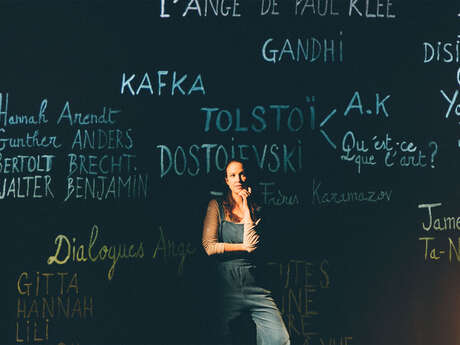 L'ANGE DE PAUL KLEE
GANDHI
KAFKA
Hannah Arendt
Gunther ANDERS
BERTOLT BRECHT.
WALTER BENJAMIN
TOLSTOÏ
DOSTOÏEVSKI
Frères Karamazov
A.K
Qu'est-ce
que l'art?
DISI
Yo
Dialogues Ange
GITTA
HANNAH
LILI
Jame
Ta-N